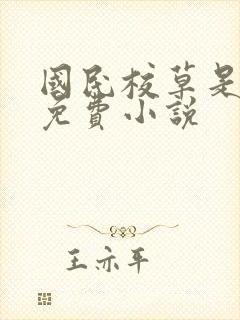 國民校草是
免費小說
王亦平